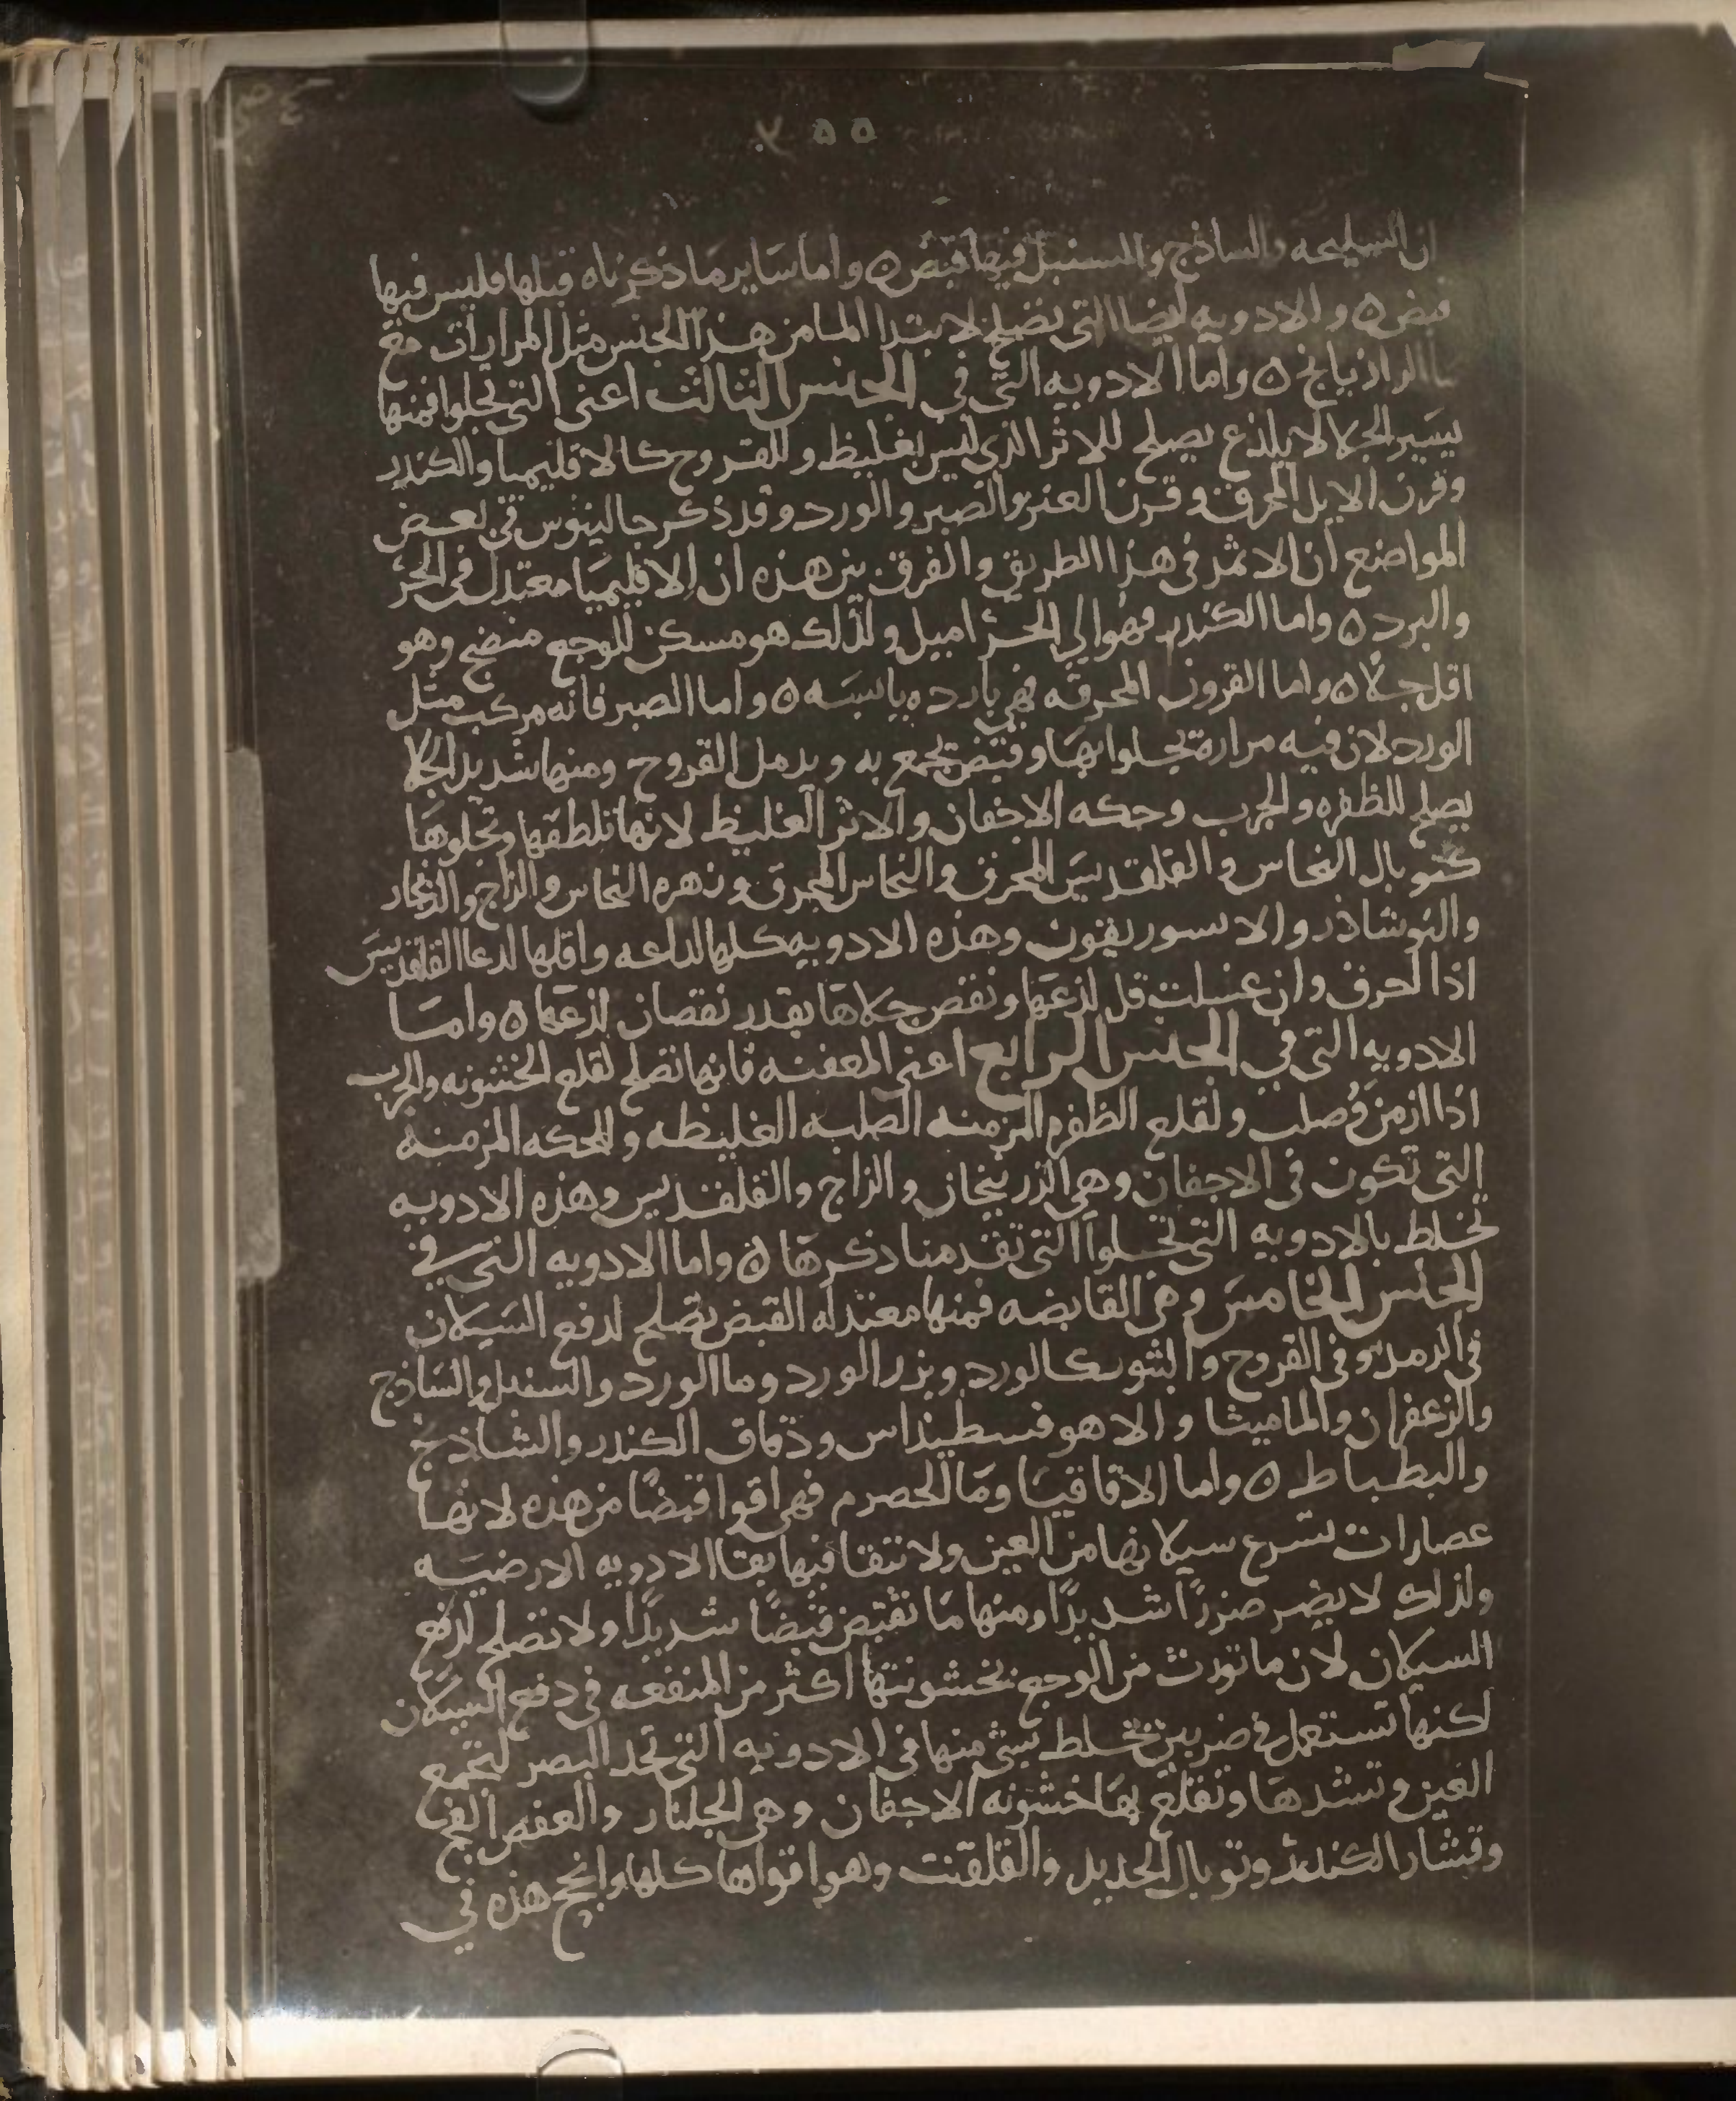 ٥٥
ان السليخه والساذج والسنبل فيها قبض ٥ واما ساير ما ذكرناه قبلها فليس فيها
قبض ٥ والادويه ايضا التى تصلح لابتدا الما من هذا الجنس مثل المرارات مع
ما الرازيانج ٥ واما الادويه التى فى الجنس الثالث اعنى التى تجلوا فمنها
يسير الجلا لا يلذع يصلح للاثر الذى ليس بغليظ وللقروح كالاقليميا والكندر
وقرن الايل المحرق وقرن العنز والصبر والورد وقد ذكر جالينوس فى بعض
المواضع ان الاثمد فى هذا الطريق والفرق بين هذه ان الاقليميا معتدل فى الحر
والبرد ٥ واما الكندر فهو الى الحر اميل ولذلك هو مسكن للوجع منضج وهو
اقل جلا ٥ واما القرون المحرقه فهى بارده يابسه ٥ واما الصبر فانه مركب مثل
الورد لان فيه مرارة يجلوا بها وقبض يجمع به ويدمل القروح ومنها شديد الجلا
يصلح للظفره والجرب وحكه الاجفان والاثر الغليظ لانها تلطفها وتجلوها
كتوبال النحاس والقلقديس المحرق والنحاس المحرق وزهره النحاس والزاج والزنجار
والنوشاذر والاسوريقون وهذه الادويه كلها لداعه واقلها لدعا القلقديس
اذا احرق وان غسلت قل لذعها ونقص جلاها بقدر نقصان لذعها ٥ واما
الادويه التى فى الجنس الرابع اعنى المعفنه فانها تصلح لقلع الخشونه والجرب
اذا ازمن وصلب ولقلع الظفره المزمنه الصلبه الغليظه وللحكه المزمنه
التى تكون فى الاجفان وهى الزرنيخان والزاج والقلقديس وهذه الادويه
تخلط بالادويه التى تجلوا التى تقدمنا ذكرها ٥ واما الادويه التى فى
الجنس الخامس وهى القابضه فمنها معتدله القبض تصلح لدفع السيلان
فى الرمد وفى القروح والبثور كالورد وبزر الورد وما الورد والسنبل والساذج
والزعفران والماميثا والاهوفسطيداس ودقاق الكندر والشاذنج
والبطباط ٥ واما الاقاقيا وما الحصرم فهى اقوا قبضًا من هذه لانها
عصارات تسرع سيلانها من العين ولا تبقا فيها بقا الادويه الارضيه
ولذلك لا يضر ضررًا شديدًا ومنها ما تقبض قبضًا شديدًا ولا تصلح لدفع
السيلان لان ما تورث من الوجع بخشونتها اكثر من المنفعه فى دفع السيلان
لكنها تستعمل فى ضربين تخلط شى منها فى الادويه التى تحد البصر لتجمع
العين وتشدها وتقلع بها خشونه الاجفان وهى الجلنار والعفص الفج
وقشار الكندر وتوبال الحديد والقلقنت وهو اقواها كلها وانجح هذه فى